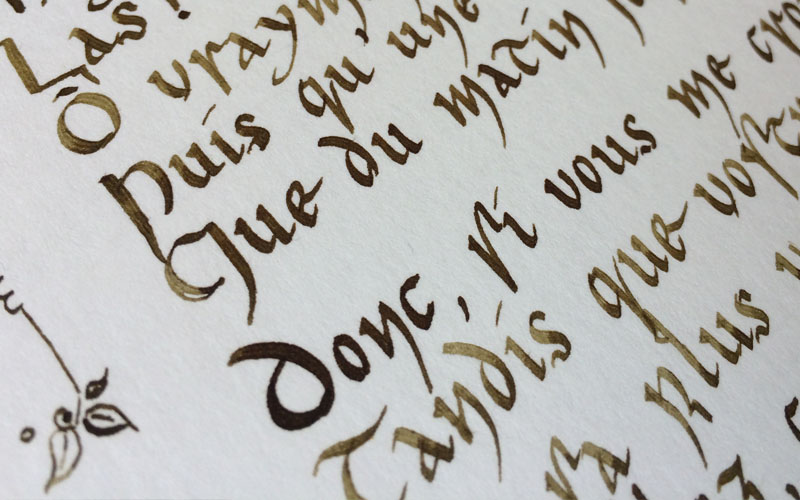 Las!
Ô vraym
Puis qu'une
Que du matin
Donc, ſi vous me cro
Tandis que voſt
ſa plus